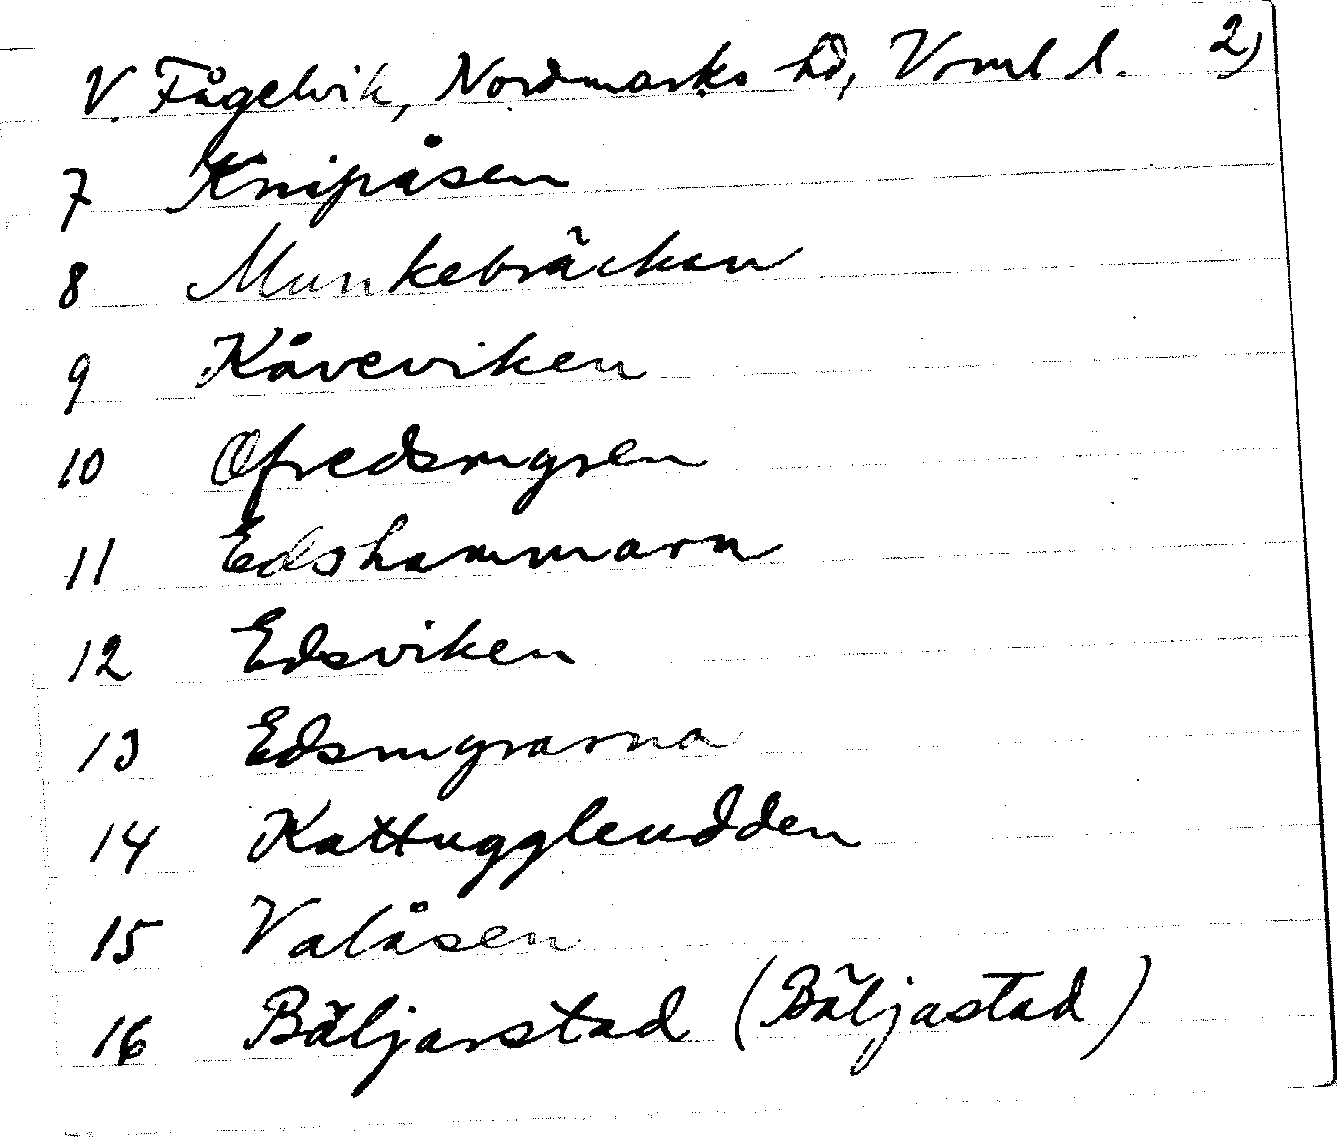 V. Fågelvik, Nordmarks hd, Vrml l. 2)
7 Knipåsen
8 Munkebräckan
9 Kåveviken
10 Ofredsmyren
11 Edshammarn
12 Edsviken
13 Edsmyrarna
14 Kattuggleudden
15 Valåsen
16 Bäljarstad (Bäljastad)